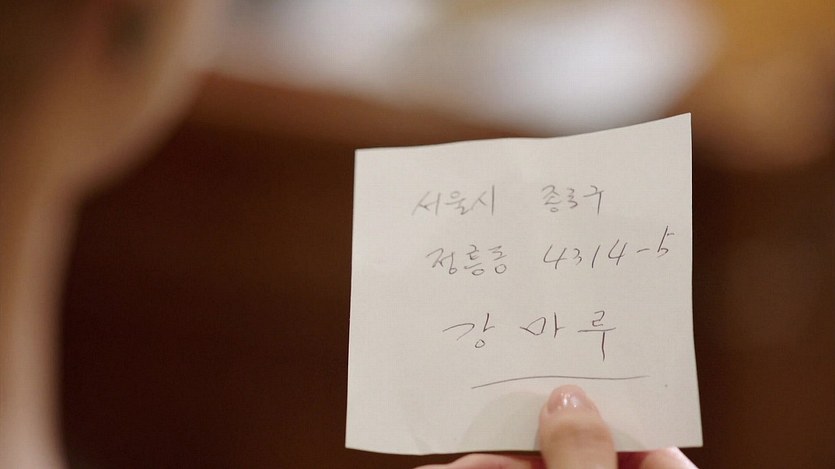 서울시 종로구
정릉동 4314-5
강마루